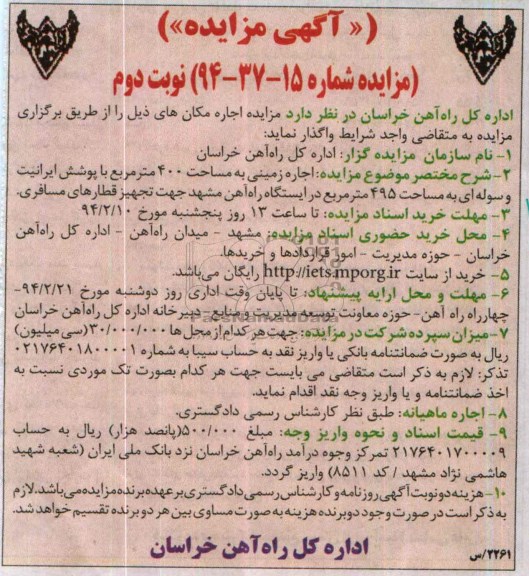 (« آگهی مزایده»)
(مزایده شماره ۱۵-۳۷-۹۴) نوبت دوم
اداره کل راه‌آهن خراسان در نظر دارد مزایده اجاره مکان های ذیل را از طریق برگزاری
مزایده به متقاضی واجد شرایط واگذار نماید:
۱- نام سازمان مزایده گزار: اداره کل راه‌آهن خراسان
۲- شرح مختصر موضوع مزایده: اجاره زمینی به مساحت ۴۰۰ مترمربع با پوشش ایرانیت
و سوله ای به مساحت ۴۹۵ مترمربع در ایستگاه راه‌آهن مشهد جهت تجهیز قطارهای مسافری.
۳- مهلت خرید اسناد مزایده: تا ساعت ۱۳ روز پنجشنبه مورخ ۹۴/۲/۱۰
۴- محل خرید حضوری اسناد مزایده: مشهد - میدان راه‌آهن - اداره کل راه‌آهن
خراسان - حوزه مدیریت - امور قراردادها و خریدها.
۵- خرید از سایت http://iets.mporg.ir رایگان می‌باشد.
۶- مهلت و محل ارایه پیشنهاد: تا پایان وقت اداری روز دوشنبه مورخ ۹۴/۲/۲۱-
چهارراه راه آهن - حوزه معاونت توسعه مدیریت و منابع - دبیرخانه اداره کل راه‌آهن خراسان
۷- میزان سپرده شرکت در مزایده: جهت هر کدام از محل ها ۳۰/۰۰۰/۰۰۰ (سی میلیون)
ریال به صورت ضمانتنامه بانکی یا واریز نقد به حساب سیبا به شماره ۰۲۱۷۶۴۰۱۸۰۰۰۰۱
تذکر: لازم به ذکر است متقاضی می بایست جهت هر کدام بصورت تک موردی نسبت به
اخذ ضمانتنامه و یا واریز وجه نقد اقدام نماید.
۸- اجاره ماهیانه: طبق نظر کارشناس رسمی دادگستری.
۹- قیمت اسناد و نحوه واریز وجه: مبلغ ۵۰۰/۰۰۰ (پانصد هزار) ریال به حساب
۲۱۷۶۴۰۱۷۰۰۰۰۹ تمرکز وجوه درآمد راه‌آهن خراسان نزد بانک ملی ایران (شعبه شهید
هاشمی نژاد مشهد / کد ۸۵۱۱) واریز گردد.
۱۰- هزینه دو نوبت آگهی روزنامه و کارشناس رسمی دادگستری بر عهده برنده مزایده می‌باشد. لازم
به ذکر است در صورت وجود دو برنده هزینه به صورت مساوی بین هر دو برنده تقسیم خواهد شد.
اداره کل راه‌آهن خراسان
۲۲۶۱/س